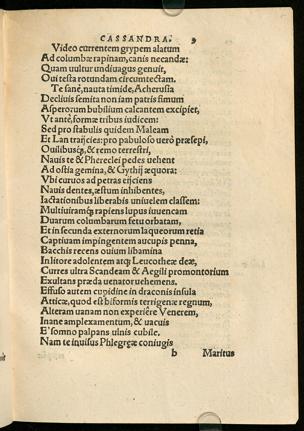 CASSANDRA. 9
Video currentem grypem alatum
Ad columbæ rapinam, canis necandæ:
Quam uultur undiuagus genuit,
Oui testa rotundam circumtectam.
Te sanè, nauta timide, Acherusia
Decliuis semita non iam patris fimum
Asperorum bubilium calcantem excipiet,
Vt antè, formæ tribus iudicem:
Sed pro stabulis quidem Maleam
Et Lan trarijcies: pro pabuloso uerò præsepi,
Ouilibusq́;, & remo terrestri,
Nauis te & Phereclei pedes uehent
Ad ostia gemina, & Gythij æquora:
Vbi curuos ad petras eijciens
Nauis dentes, æstum inhibentes,
Iactationibus liberabis uniuelem classem:
Multiuiramq́; rapiens lupus iuuencam
Duarum columbarum fetu orbatam,
Et in secunda externorum laqueorum retia
Captiuam impingentem aucupis penna,
Bacchis recens ouium libamina
In litore adolentem atq; Leucotheæ deæ,
Curres ultra Scandeam & Aegili promontorium
Exultans præda uenator uehemens.
Effuso autem cupidine in draconis insula
Atticæ, quod est biformis terrigenæ regnum,
Alteram uanam non experiêre Venerem,
Inane amplexamentum, & uacuis
E' somno palpans ulnis cubile.
Nam te inuisus Phlegrææ coniugis
b Maritus